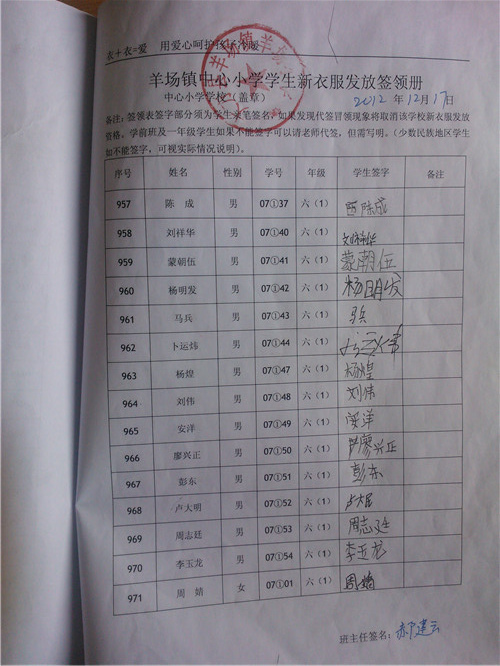 衣+衣=爱 用爱心呵护孩子冷暖
羊场镇中心小学学生新衣服发放签领册
中心小学学校（盖章） 2012 年 12月 17日
备注：签领表签字部分须为学生亲笔签名，如果发现代签冒领现象将取消该学校新衣服发放
资格。学前班及一年级学生如果不能签字可以请老师代签，但需写明。（少数民族地区学生
如不能签字，可视实际情况说明）。
序号 姓名 性别 学号 年级 学生签字 备注
957 陈 成 男 07①37 六（1） 陈成
958 刘祥华 男 07①40 六（1） 刘祥华
959 蒙朝伍 男 07①41 六（1） 蒙朝伍
960 杨明发 男 07①42 六（1） 杨明发
961 马兵 男 07①43 六（1）
962 卜运炜 男 07①44 六（1）
963 杨煌 男 07①47 六（1） 杨煌
964 刘伟 男 07①48 六（1） 刘伟
965 安洋 男 07①49 六（1） 安洋
966 廖兴正 男 07①50 六（1） 廖兴正
967 彭东 男 07①51 六（1） 彭东
968 卢大明 男 07①52 六（1）
969 周志廷 男 07①53 六（1） 周志廷
970 李玉龙 男 07①54 六（1） 李玉龙
971 周 婧 女 07①01 六（1） 周婧
班主任签名： 郝建云